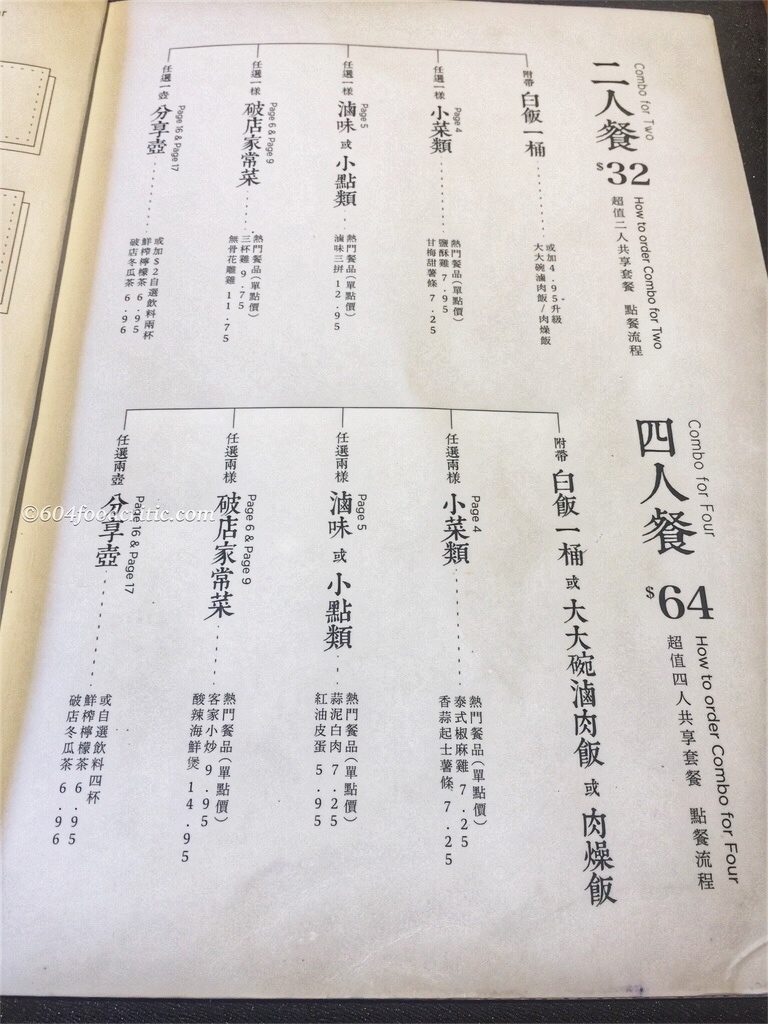 Combo for Two
二人餐 $32
How to order Combo for Two
超值二人共享套餐 點餐流程
附帶 白飯一桶
或加4.95升級
大大碗滷肉飯/肉燥飯
任選一樣 小菜類
Page 4
熱門餐品(單點價)
鹽酥雞 7.95
甘梅甜薯條 7.25
任選一樣 滷味 或 小點類
Page 5
熱門餐品(單點價)
滷味三拼 12.95
任選一樣 破店家常菜
Page 6 & Page 9
熱門餐品(單點價)
三杯雞 9.75
無骨花雕雞 11.75
任選一壺 分享壺
Page 16 & Page 17
或加$2自選飲料兩杯
鮮榨檸檬茶 6.95
破店冬瓜茶 6.96
Combo for Four
四人餐 $64
How to order Combo for Four
超值四人共享套餐 點餐流程
附帶 白飯一桶 或 大大碗滷肉飯 或 肉燥飯
任選兩樣 小菜類
Page 4
熱門餐品(單點價)
泰式椒麻雞 7.25
香蒜起士薯條 7.25
任選兩樣 滷味 或 小點類
Page 5
熱門餐品(單點價)
蒜泥白肉 7.25
紅油皮蛋 5.95
任選兩樣 破店家常菜
Page 6 & Page 9
熱門餐品(單點價)
客家小炒 9.95
酸辣海鮮煲 14.95
任選兩壺 分享壺
Page 16 & Page 17
或自選飲料四杯
鮮榨檸檬茶 6.95
破店冬瓜茶 6.96
©604foodcritic.com